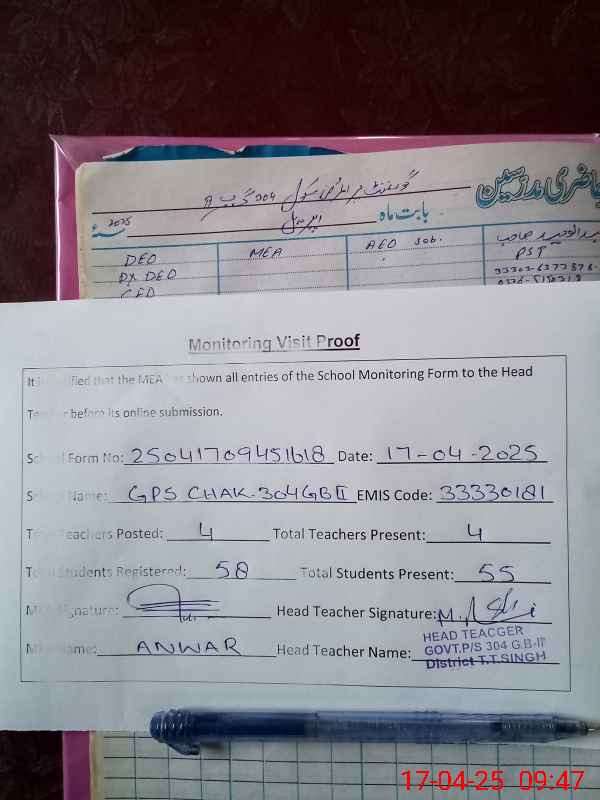 حاضری مدرسین
گورنمنٹ پرائمری سکول 304 گ ب
بابت ماہ اپریل 2025
DEO MEA AEO Sob.
DY DEO PST
33302-6377878-
Monitoring Visit Proof
It is certified that the MEA has shown all entries of the School Monitoring Form to the Head
Teacher before its online submission.
School Form No: 25041709451618 Date: 17-04-2025
School Name: GPS CHAK-304GB II EMIS Code: 33330181
Total Teachers Posted: 4 Total Teachers Present: 4
Total Students Registered: 58 Total Students Present: 55
MEA Signature: Head Teacher Signature:
MEA Name: ANWAR Head Teacher Name:
HEAD TEACGER
GOVT.P/S 304 G.B-II
District T.T.SINGH
17-04-25 09:47